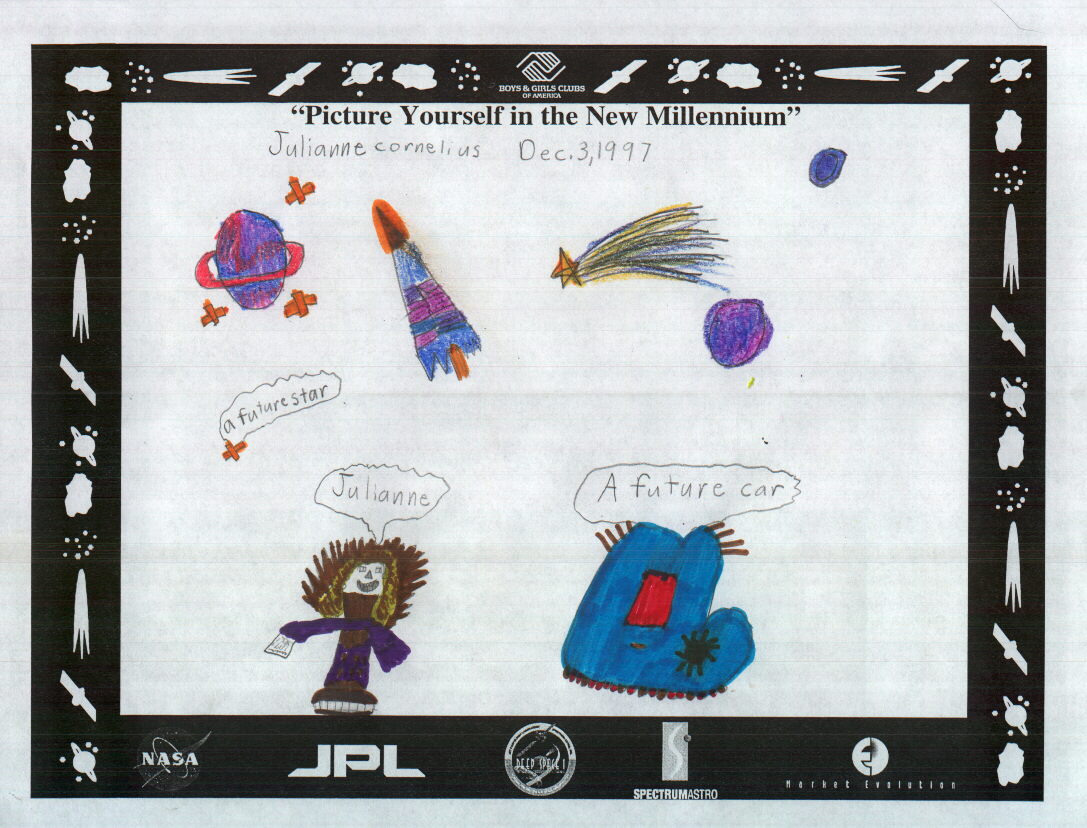 BOYS & GIRLS CLUBS
OF AMERICA
“Picture Yourself in the New Millennium”
Julianne cornelius Dec.3,1997
a future star
Julianne
A future car
NASA
JPL
DEEP SPACE 1
SPECTRUMASTRO
Market Evolution